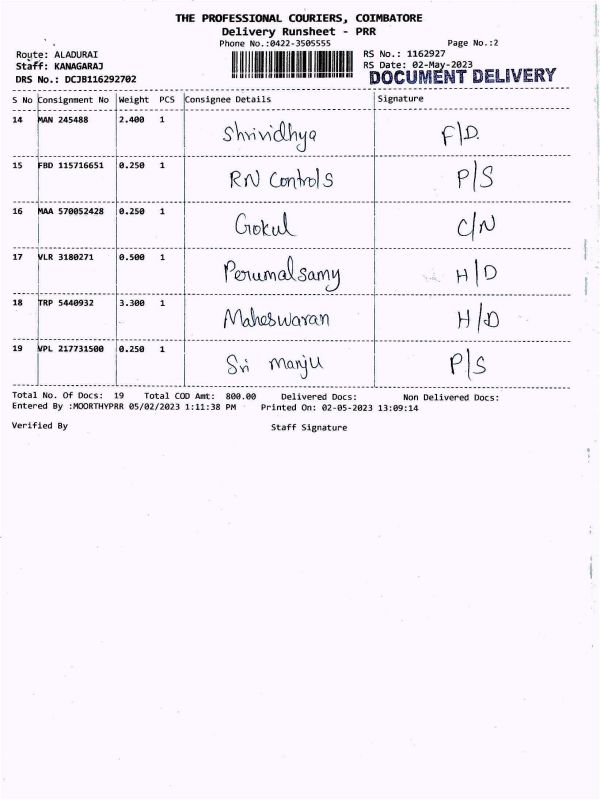 THE PROFESSIONAL COURIERS, COIMBATORE
Delivery Runsheet - PRR
Phone No.:0422-3505555 Page No.:2
Route: ALADURAI RS No.: 1162927
Staff: KANAGARAJ RS Date: 02-May-2023
DRS No.: DCJB116292702 DOCUMENT DELIVERY
S No Consignment No Weight PCS Consignee Details Signature
14 MAN 245488 2.400 1 Shrividhya F/D.
15 FBD 115716651 0.250 1 RN Controls P/S
16 MAA 570052428 0.250 1 Gokul C/N
17 VLR 3180271 0.500 1 Perumalsamy H/D
18 TRP 5440932 3.300 1 Maheswaran H/D
19 VPL 217731500 0.250 1 Sri manju P/S
Total No. Of Docs: 19 Total COD Amt: 800.00 Delivered Docs: Non Delivered Docs:
Entered By :MOORTHYPRR 05/02/2023 1:11:38 PM Printed On: 02-05-2023 13:09:14
Verified By Staff Signature